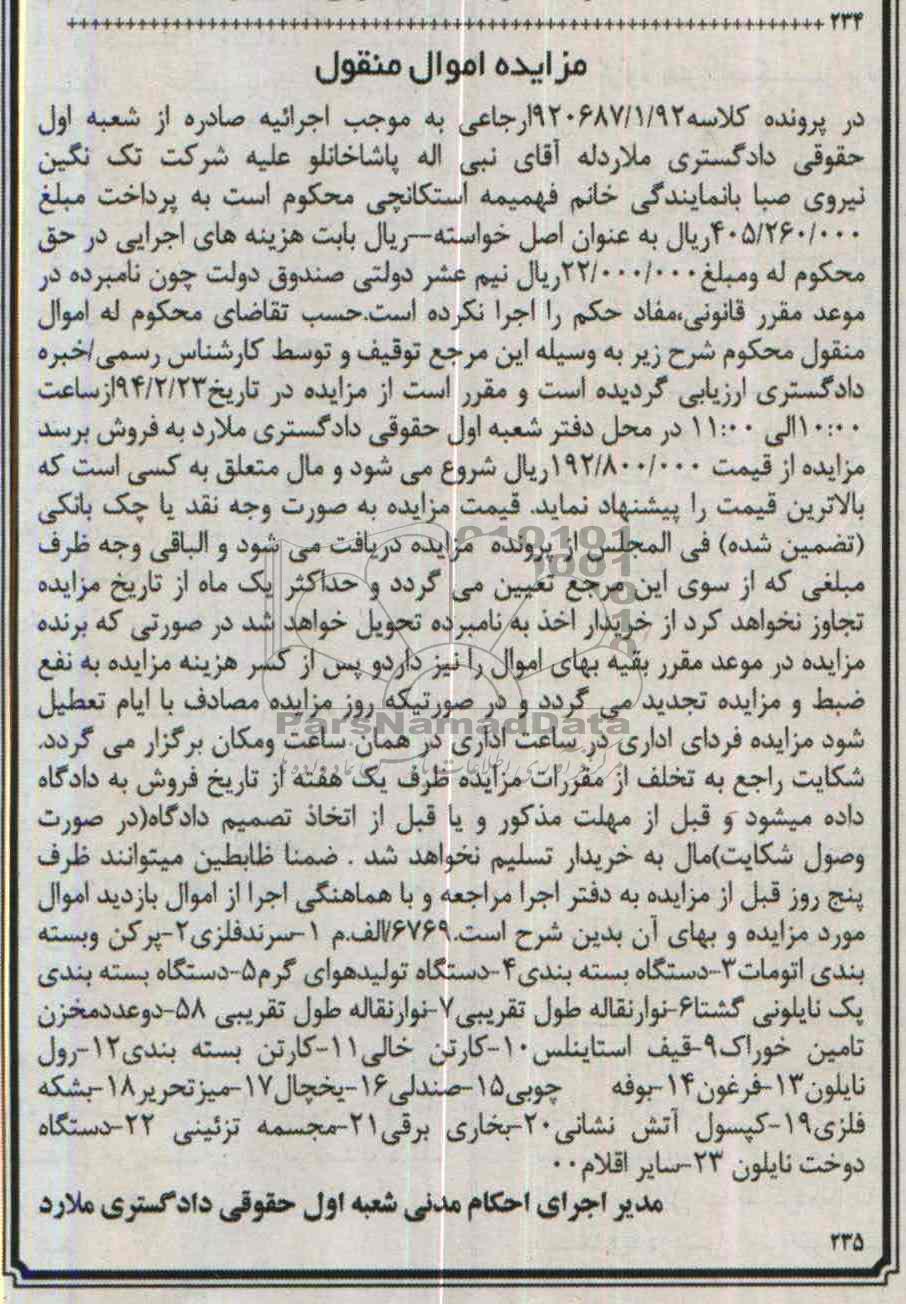 ۲۳۴
مزایده اموال منقول
در پرونده کلاسه۹۲۰۶۸۷/۱/۹۲ارجاعی به موجب اجرائیه صادره از شعبه اول
حقوقی دادگستری ملاردله آقای نبی اله پاشاخانلو علیه شرکت تک نگین
نیروی صبا بانمایندگی خانم فهمیمه استکانچی محکوم است به پرداخت مبلغ
۴۰۵/۲۶۰/۰۰۰ریال به عنوان اصل خواسته--ریال بابت هزینه های اجرایی در حق
محکوم له ومبلغ۲۲/۰۰۰/۰۰۰ریال نیم عشر دولتی صندوق دولت چون نامبرده در
موعد مقرر قانونی،مفاد حکم را اجرا نکرده است.حسب تقاضای محکوم له اموال
منقول محکوم شرح زیر به وسیله این مرجع توقیف و توسط کارشناس رسمی/خبره
دادگستری ارزیابی گردیده است و مقرر است از مزایده در تاریخ۹۴/۲/۲۳ازساعت
۱۰:۰۰الی ۱۱:۰۰ در محل دفتر شعبه اول حقوقی دادگستری ملارد به فروش برسد
مزایده از قیمت ۱۹۲/۸۰۰/۰۰۰ریال شروع می شود و مال متعلق به کسی است که
بالاترین قیمت را پیشنهاد نماید. قیمت مزایده به صورت وجه نقد یا چک بانکی
(تضمین شده) فی المجلس از پرونده مزایده دریافت می شود و الباقی وجه ظرف
مبلغی که از سوی این مرجع تعیین می گردد و حداکثر یک ماه از تاریخ مزایده
تجاوز نخواهد کرد از خریدار اخذ به نامبرده تحویل خواهد شد در صورتی که برنده
مزایده در موعد مقرر بقیه بهای اموال را نیز داردو پس از کسر هزینه مزایده به نفع
ضبط و مزایده تجدید می گردد و در صورتیکه روز مزایده مصادف با ایام تعطیل
شود مزایده فردای اداری در ساعت اداری در همان ساعت ومکان برگزار می گردد.
شکایت راجع به تخلف از مقررات مزایده ظرف یک هفته از تاریخ فروش به دادگاه
داده میشود و قبل از مهلت مذکور و یا قبل از اتخاذ تصمیم دادگاه(در صورت
وصول شکایت)مال به خریدار تسلیم نخواهد شد . ضمنا ظابطین میتوانند ظرف
پنج روز قبل از مزایده به دفتر اجرا مراجعه و با هماهنگی اجرا از اموال بازدید اموال
مورد مزایده و بهای آن بدین شرح است.۶۷۶۹/الف.م ۱-سرندفلزی۲-پرکن وبسته
بندی اتومات۳-دستگاه بسته بندی۴-دستگاه تولیدهوای گرم۵-دستگاه بسته بندی
پک نایلونی گشتا۶-نوارنقاله طول تقریبی۷-نوارنقاله طول تقریبی ۵۸-دوعددمخزن
تامین خوراک۹-قیف استاینلس۱۰-کارتن خالی۱۱-کارتن بسته بندی۱۲-رول
نایلون۱۳-فرغون۱۴-بوفه چوبی۱۵-صندلی۱۶-یخچال۱۷-میزتحریر۱۸-بشکه
فلزی۱۹-کپسول آتش نشانی۲۰-بخاری برقی۲۱-مجسمه تزئینی ۲۲-دستگاه
دوخت نایلون ۲۳-سایر اقلام۰۰
مدیر اجرای احکام مدنی شعبه اول حقوقی دادگستری ملارد
۲۳۵
ParsNamadData